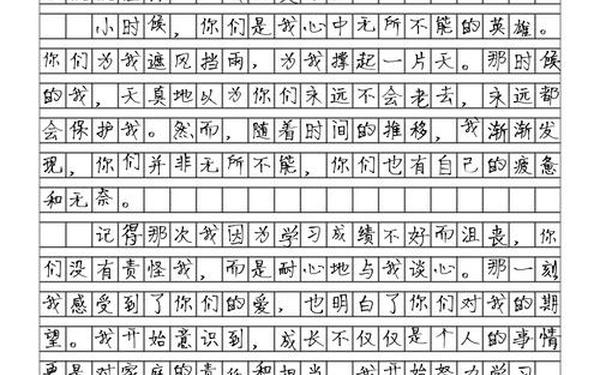 小时候，你们是我心中无所不能的英雄。
你们为我遮风挡雨，为我撑起一片天。那时候
的我，天真地以为你们永远不会老去，永远都
会保护我。然而，随着时间的推移，我渐渐发
现，你们并非无所不能，你们也有自己的疲惫
和无奈。
记得那次我因为学习成绩不好而沮丧，你
们没有责怪我，而是耐心地与我谈心。那一刻
我感受到了你们的爱，也明白了你们对我的期
望。我开始意识到，成长不仅仅是个人的事情
更是对家庭的责任和担当。我开始努力学习